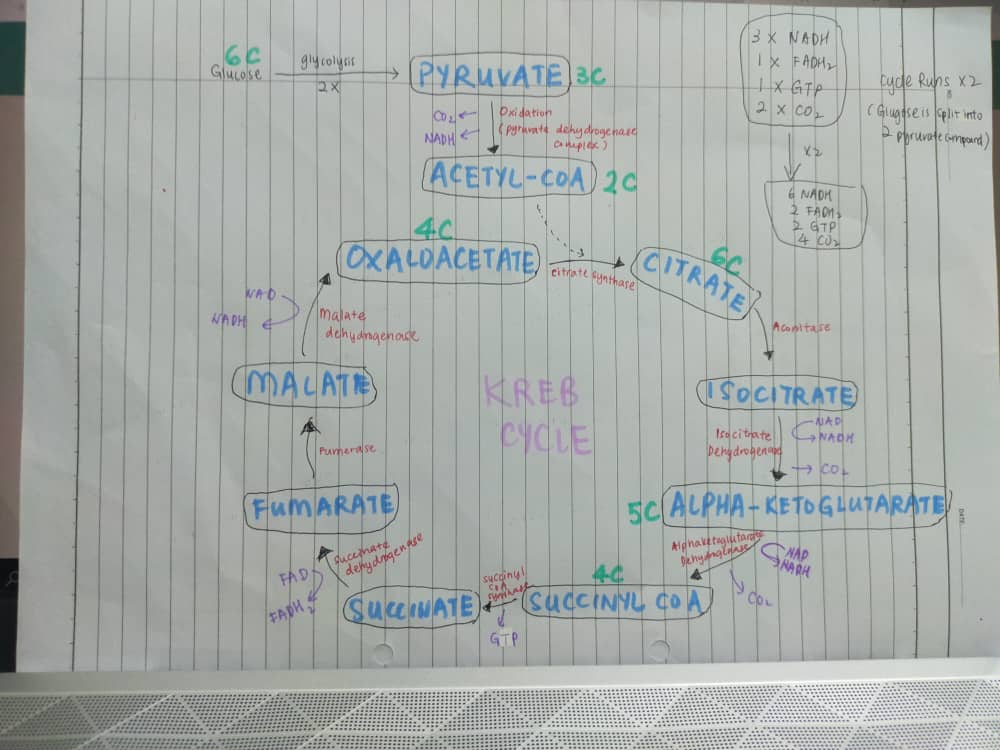 6C
Glucose
glycolysis
2X
PYRUVATE 3C
3 X NADH
1 X FADH₂
1 X GTP
2 X CO₂
X2
6 NADH
2 FADH₂
2 GTP
4 CO₂
Cycle Runs X2
(Glugose is split into
2 pyruvate compound)
CO₂
NADH
Oxidation
(pyruvate dehydrogenase
complex)
ACETYL-COA 2C
4C
OXALOACETATE
citrate synthase
6C
CITRATE
Aconitase
ISOCITRATE
Isocitrate
Dehydrogenase
NAD
NADH
CO₂
5C ALPHA-KETOGLUTARATE
Alphaketoglutarate
Dehydrogenase
NAD
NADH
CO₂
4C
SUCCINYL COA
succinyl
CoA
synthase
GTP
SUCCINATE
Succinate
dehydrogenase
FAD
FADH₂
FUMARATE
Fumerase
MALATE
Malate
dehydrogenase
NAD
NADH
KREB
CYCLE
DATE